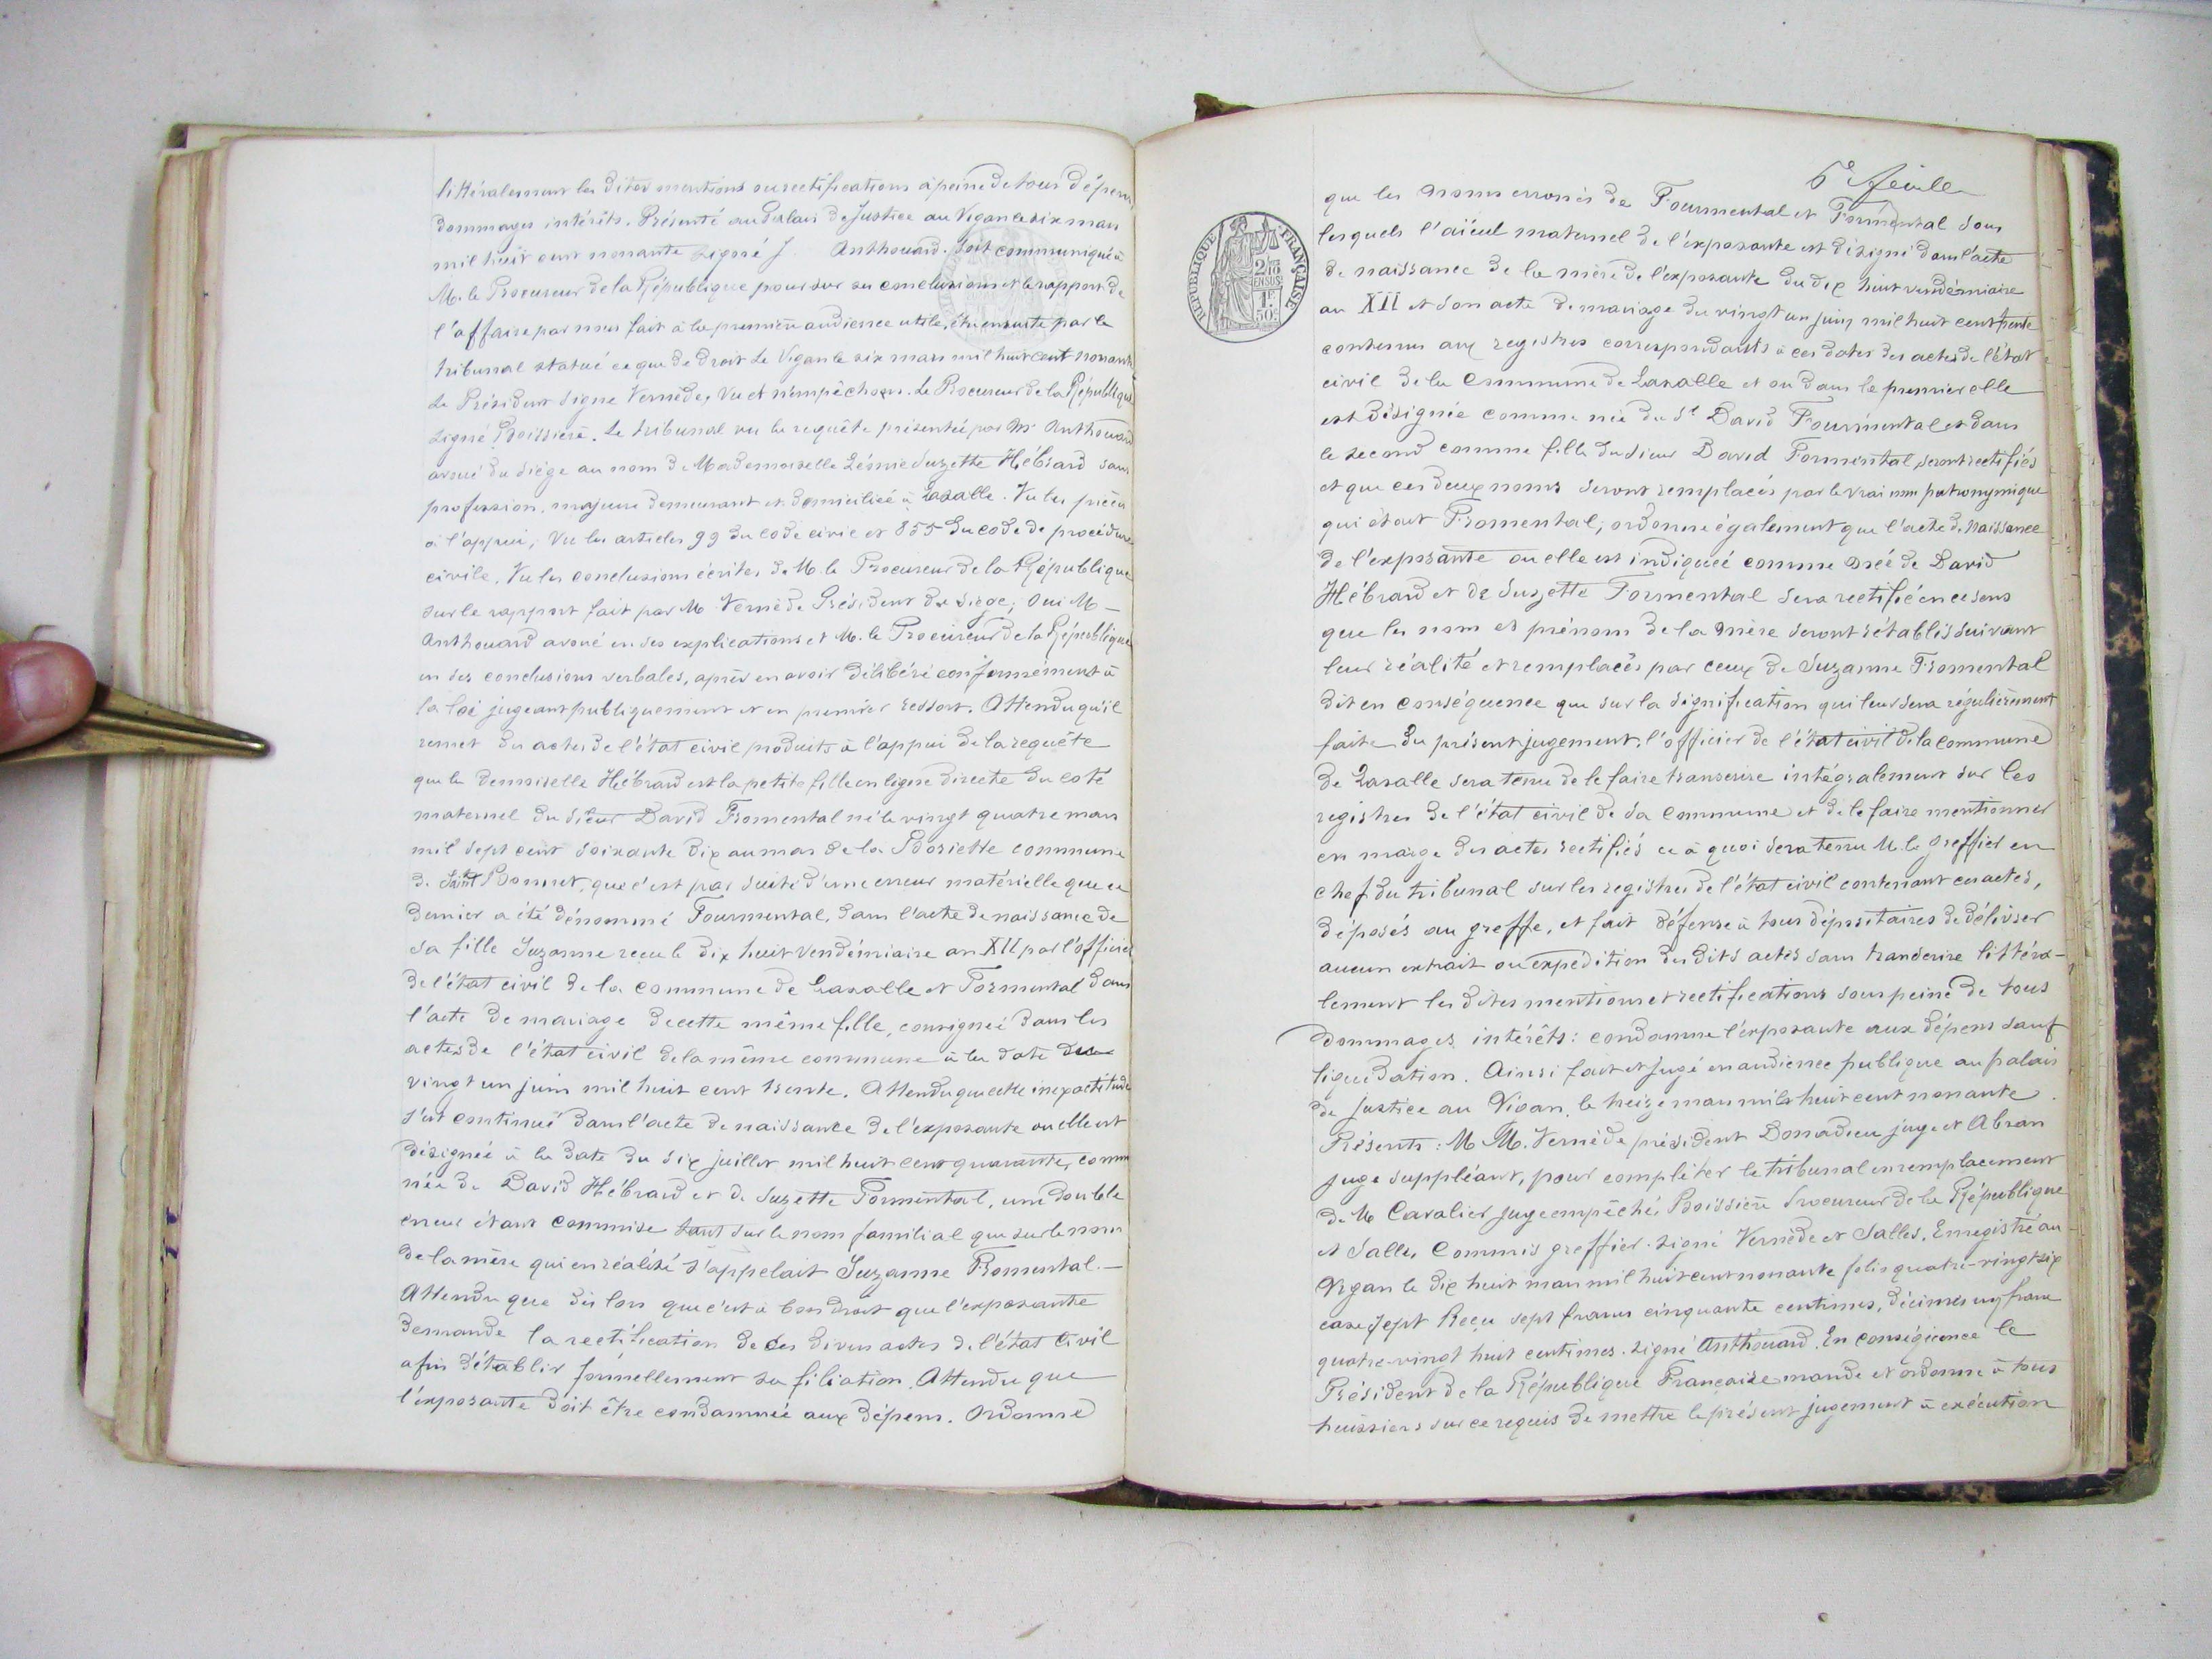 littéralement les dites mentions ou rectifications à peine de tous dépens
dommages intérêts. Présenté au Palais de Justice au Vigan le six mars
mil huit cent nonante signé J. Anthouard. Soit communiqué à
M. le Procureur de la République pour sur ses conclusions et le rapport de
l'affaire par nous fait à la première audience utile, être ensuite par le
tribunal statué ce que de droit Le Vigan le six mars mil huit cent nonante
Le Président signé Vernède, Vu et n'empêchons. Le Procureur de la République
signé Boissière. Le tribunal vu la requête présentée par Me Anthouard
avoué du siège au nom de Mademoiselle Léonie Suzette Hébrard sans
profession, majeure demeurant et domiciliée à Lasalle. Vu les pièces
à l'appui, Vu les articles 99 du code civil et 855 du code de procédure
civile, Vu les conclusions écrites de M. le Procureur de la République
sur le rapport fait par M Vernède Président du siège, Oui M –
Anthouard avoué en ses explications et M. le Procureur de la République
en ses conclusions verbales, après en avoir délibéré conformément à
la loi jugeant publiquement et en premier ressort. Attendu qu'il
résulte des actes de l'état civil produits à l'appui de la requête
que la demoiselle Hébrard est la petite fille en ligne directe du coté
maternel du sieur David Fromental né le vingt quatre mars
mil sept cent soixante dix au mas de la commune
de Saint Bonnet, que c'est par suite d'une erreur matérielle que ce
dernier a été dénommé Fourmental, dans l'acte de naissance de
sa fille Suzanne reçu le dix huit Vendémiaire an XII par l'officier
de l'état civil de la commune de Lasalle et Formental dans
l'acte de mariage de cette même fille, consignée dans les
actes de l'état civil de la même commune à la date du
vingt un juin mil huit cent trente. Attendu que cette inexactitude
s'est continué dans l'acte de naissance de l'exposante ou elle est
désignée à la date du six juillet mil huit cent quarante, comme
née de David Hébrard et de Suzette Formental, une double
erreur étant commise tant sur le nom familial que sur le nom
de la mère qui en réalité s'appelait Suzanne Fromental. –
Attendu que dès lors que c'est à bon droit que l'exposante
demande la rectification de ces divers actes de l'état civil
afin d'établir formellement sa filiation. Attendu que
l'exposante doit être condamnée aux dépens. Ordonne
6e feuille
RÉPUBLIQUE FRANÇAISE
2/10 EN SUS
1F 50c
que les noms erronés de Fourmental et Formental sous
lesquels l'aïeul maternel de l'exposante est désigné dans l'acte
de naissance de la mère de l'exposante du dix huit vendémiaire
an XII et son acte de mariage du vingt un juin mil huit cent trente
contenus aux registres correspondants à ces dates des actes de l'état
civil de la Commune de Lasalle et ou dans le premier elle
est désignée comme née du Sr David Fourmental et dans
le second comme fille du sieur David Formental, seront rectifiés
et que ces deux noms seront remplacés par le vrai nom patronymique
qui était Fromental, ordonne également que l'acte de naissance
de l'exposante ou elle est indiquée comme née de David
Hébrard et de Suzette Formental sera rectifié en ce sens
que les nom et prénom de la mère seront rétablis suivant
leur réalité et remplacés par ceux de Suzanne Fromental
dit en conséquence que sur la signification qui leur sera régulièrement
faite du présent jugement, l'officier de l'état civil de la commune
de Lasalle sera tenu de le faire transcrire intégralement sur les
registres de l'état civil de sa commune et de le faire mentionner
en marge des actes rectifiés ce à quoi sera tenu M. le greffier en
chef du tribunal sur les registres de l'état civil contenant ces actes,
déposés au greffe, et fait défense à tous dépositaires de délivrer
aucun extrait ou expedition des dits actes sans transcrire littéra-
lement les dites mentions et rectifications sous peine de tous
dommages intérêts: condamne l'exposante aux dépens sauf
liquidation. Ainsi fait et jugé en audience publique au palais
de justice au Vigan, le treize mars mil huit cent nonante.
Présents: M M. Vernède président Donadieu juge et Abran
juge suppléant, pour compléter le tribunal en remplacement
de M Cavalier juge empêché, Boissière Procureur de la République
et Salles, Commis greffier. Signé Vernède et Salles. Enregistré au
Vigan le dix huit mars mil huit cent nonante folio quatre-vingt six
case sept Reçu sept francs cinquante centimes, décimes un franc
quatre-vingt huit centimes. signé Anthouard. En conséquence le
Président de la République Française mande et ordonne à tous
huissiers sur ce requis de mettre le présent jugement à exécution